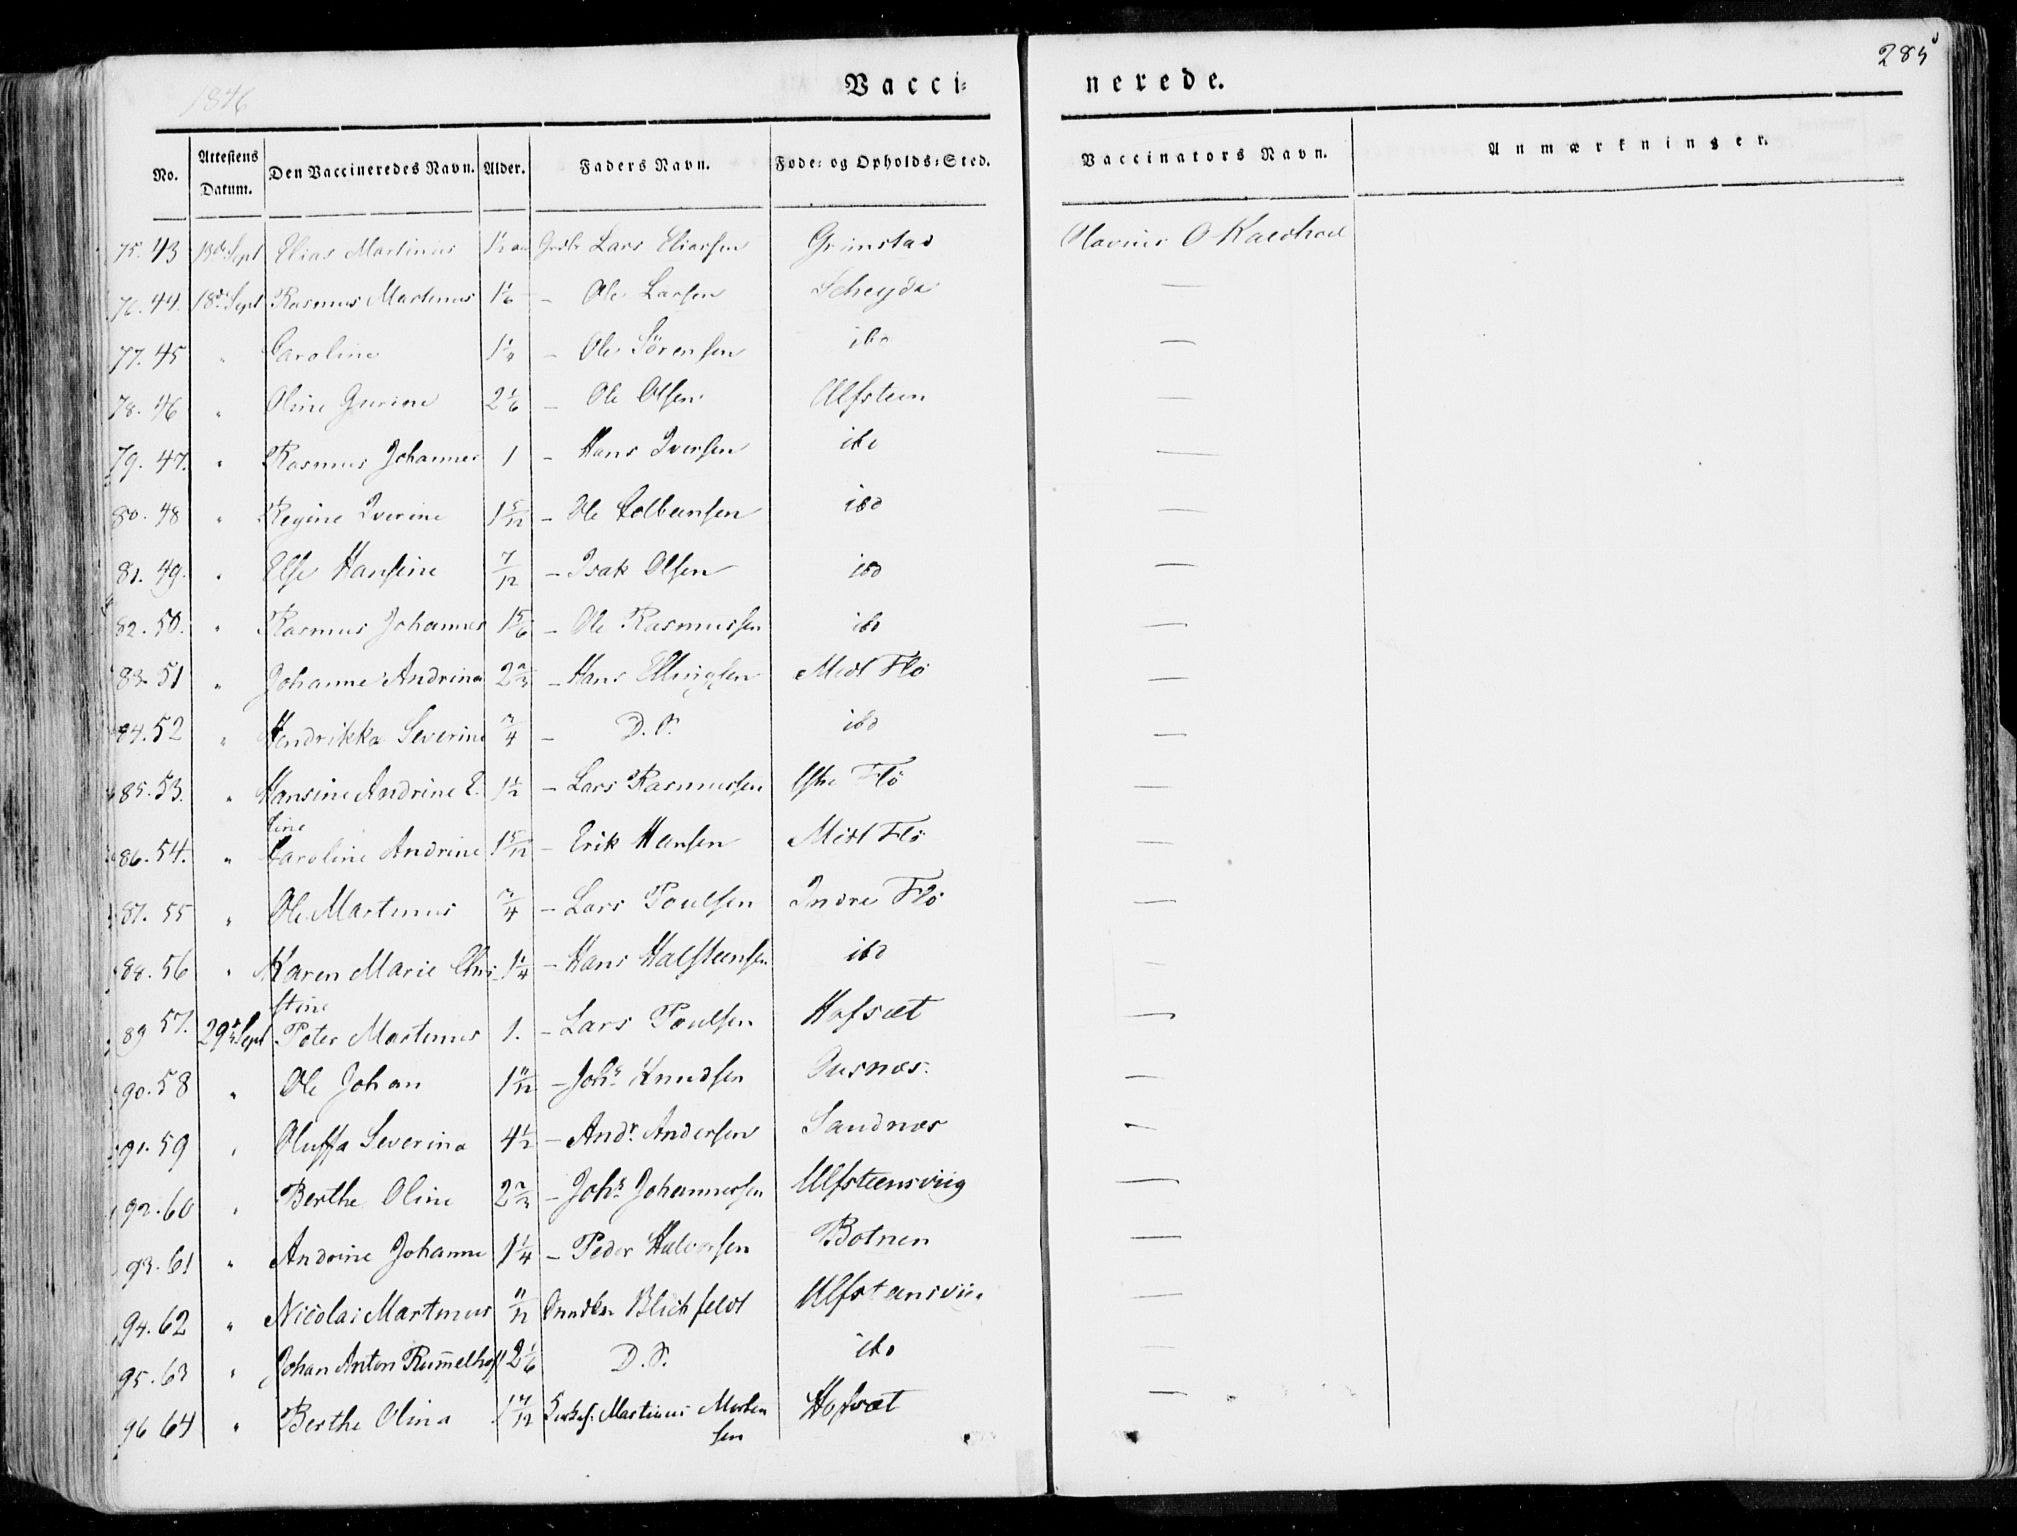 285
1846
Vacci= nerede.
No. Attestens Datum. Den Vaccineredes Navn. Alder. Faders Navn. Føde= og Opholds=Sted. Vaccinators Navn. Anmærkninger.
75. 43 13de Sept Elias Martinus 1½ Lars Eliassen Grimstad Olavius O
76. 44. 18de Sept Rasmus Martinus 1 1/6 - Ole Larsen Scheyde —
77. 45 " Caroline - Ole Sörensen ibd —
78. 46 " Oline Gurine 2 1/6 - Ole Olsen Ulfsteen —
79. 47. " Rasmus Johannes 1 - Hans Iversen ibd —
80. 48 " Regine Iverine 1 5/12 - Ole ibd —
81. 49. " Else Hansine 7/12 - Isak Olsen ibd —
82. 50. " Rasmus Johannes 1 5/6 - Ole Rasmussen ibd —
83. 51 " Johanne Andrina 2 2/3 - Hans Ellingsen Midt Flö —
84. 52 " Hendrikka Severine 3/4 - D. S. ibd —
85. 53. " Hansine Andrine E. 1½ - Lars Rasmussen Flö —
line
86. 54. " Caroline Andrine 1 5/12 - Erik Hansen Midt Flö —
87. 55 " Ole Martinus 3/4 - Lars Poulsen Indre Flö —
88. 56 " Karen Marie Chri 1 1/4 - Hans Halsteensen ibd —
stine
89 57. 29de Sept Peter Martinus 1. - Lars Poulsen Hofsæt —
90. 58 " Ole Johan 1 11/12 - Johs Knudsen —
91. 59 " Oluffa Severina 4½ - Andr. Andersen Sandnæs —
92. 60 " Berthe Oline 2 2/3 - Johs Johannessen Ulfsteensviig —
93. 61 " Andrine Johanne 1 1/4 - Peder Halvorsen Botnen —
94. 62 " Nicolai Martinus 11/12 Blichfeldt Ulfsteensviig —
95. 63 " Johan Anton Rum̄elhoff 2 1/6 D. S. ibd —
96 64 " Berthe Olina Martinus Morten Hofsæt —
sen